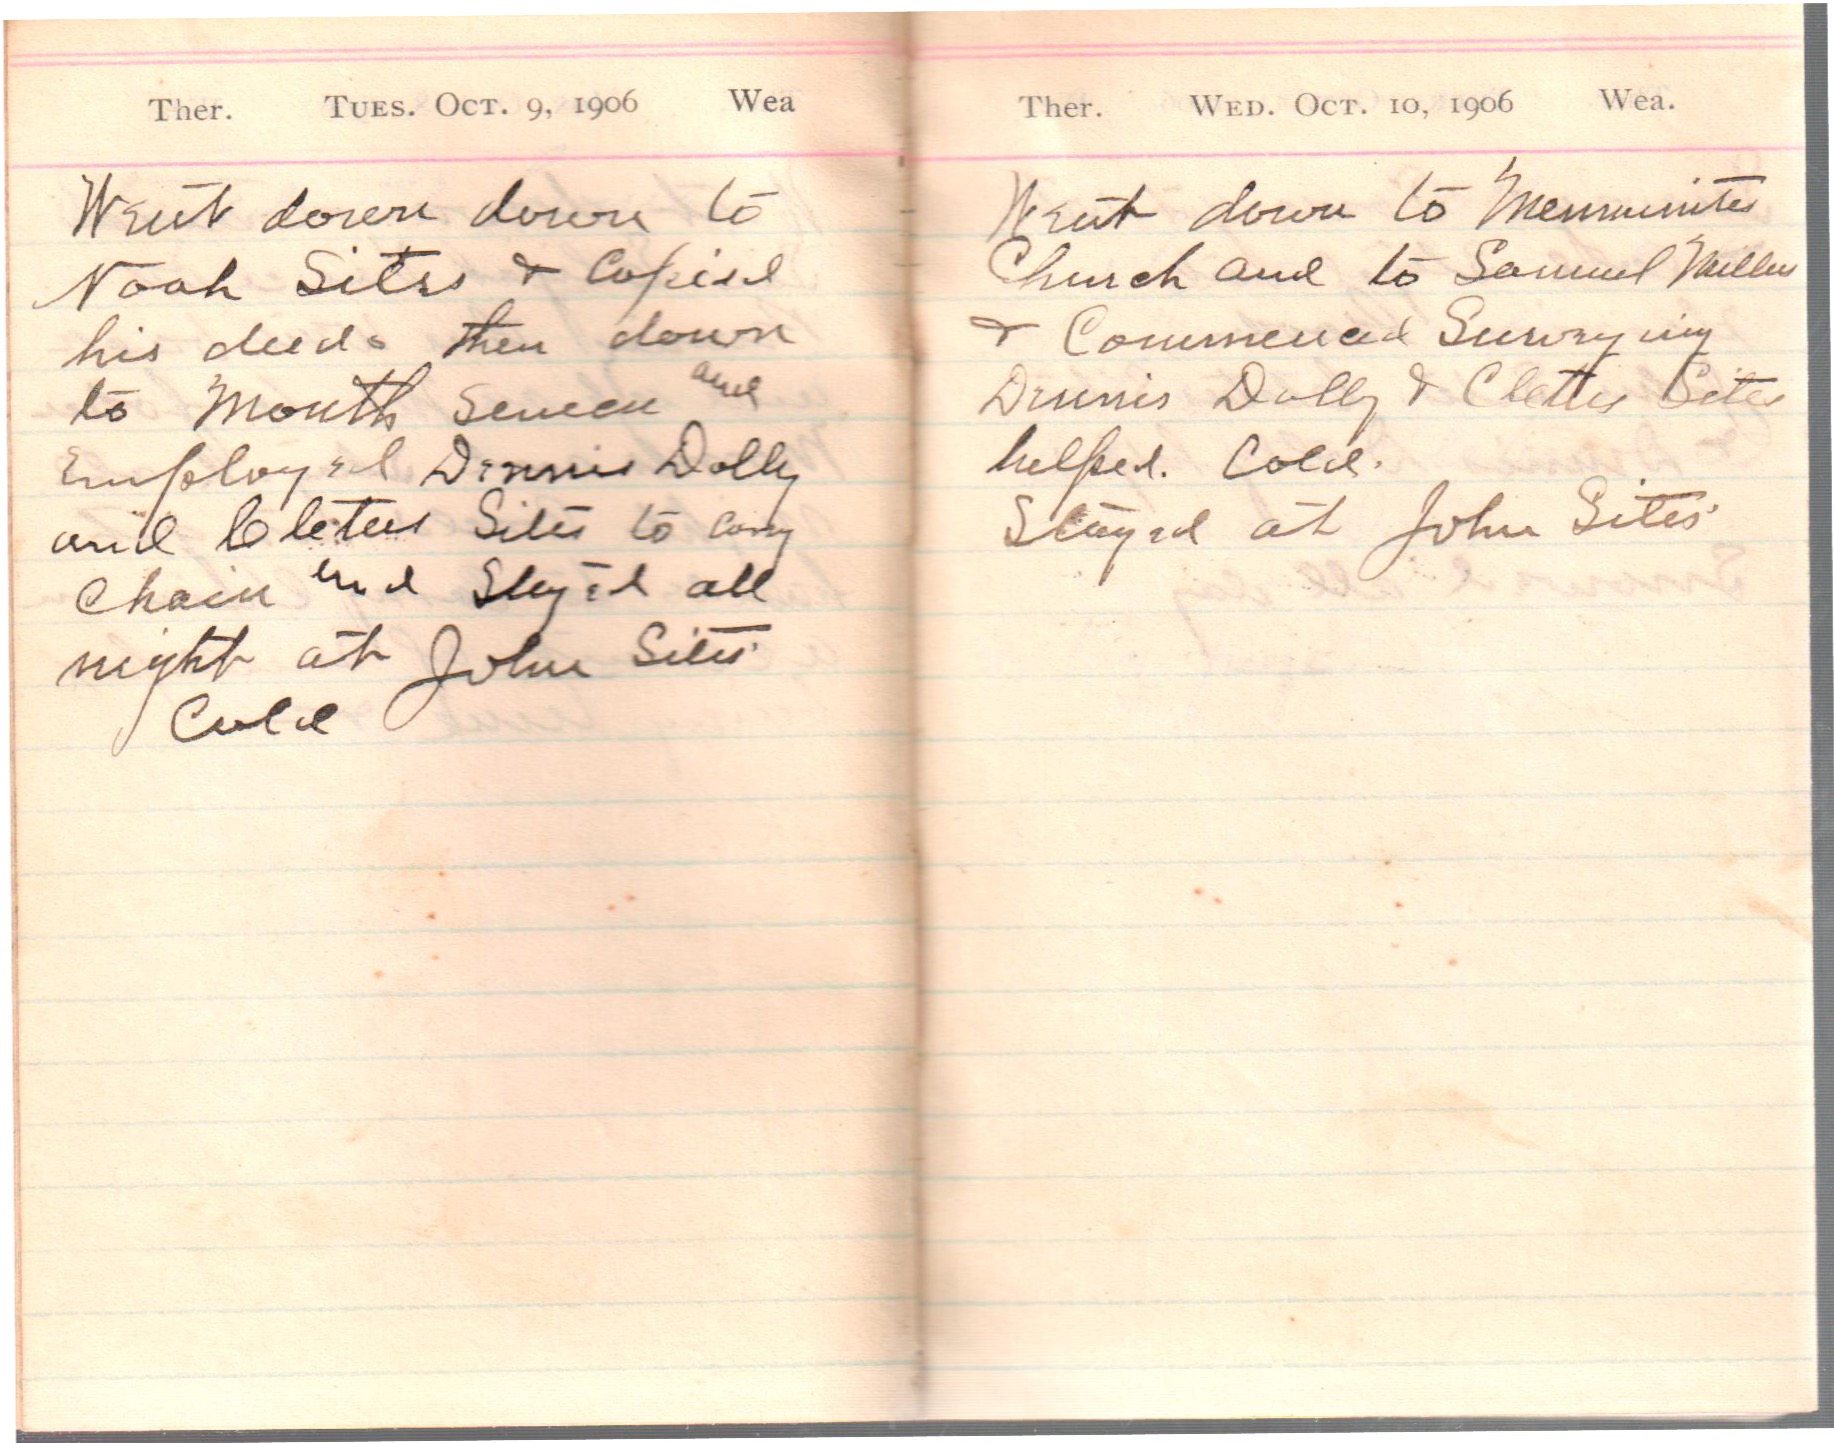 Ther. TUES. OCT. 9, 1906 Wea
Went down down to
Noah Sites & Copied
his deeds then down
to Mouth Seneca and
Employed Dennis Dolly
and Cletus Sites to carry
Chain and Stayed all
night at John Sites
Cold
Ther. WED. OCT. 10, 1906 Wea.
Went down to Mennunites
Church and to Samuel Millers
& Commenced Surveying
Dennis Dolly & Cletus Sites
helped. Cold.
Stayed at John Sites